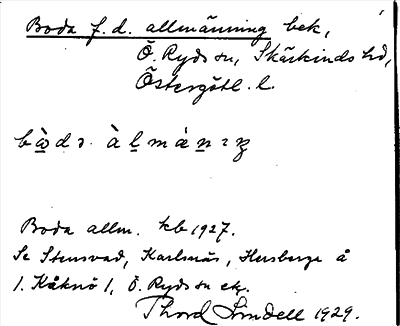 Boda f. d. allmänning bek,
Ö. Ryds sn, Skärkinds hd,
Östergötl. l.
Boda allm. kb 1927.
Se Stensvad, Karlsnäs, Hersberga å
1. Kåknö 1, Ö. Ryds sn etc.
Thord Lindell 1929.